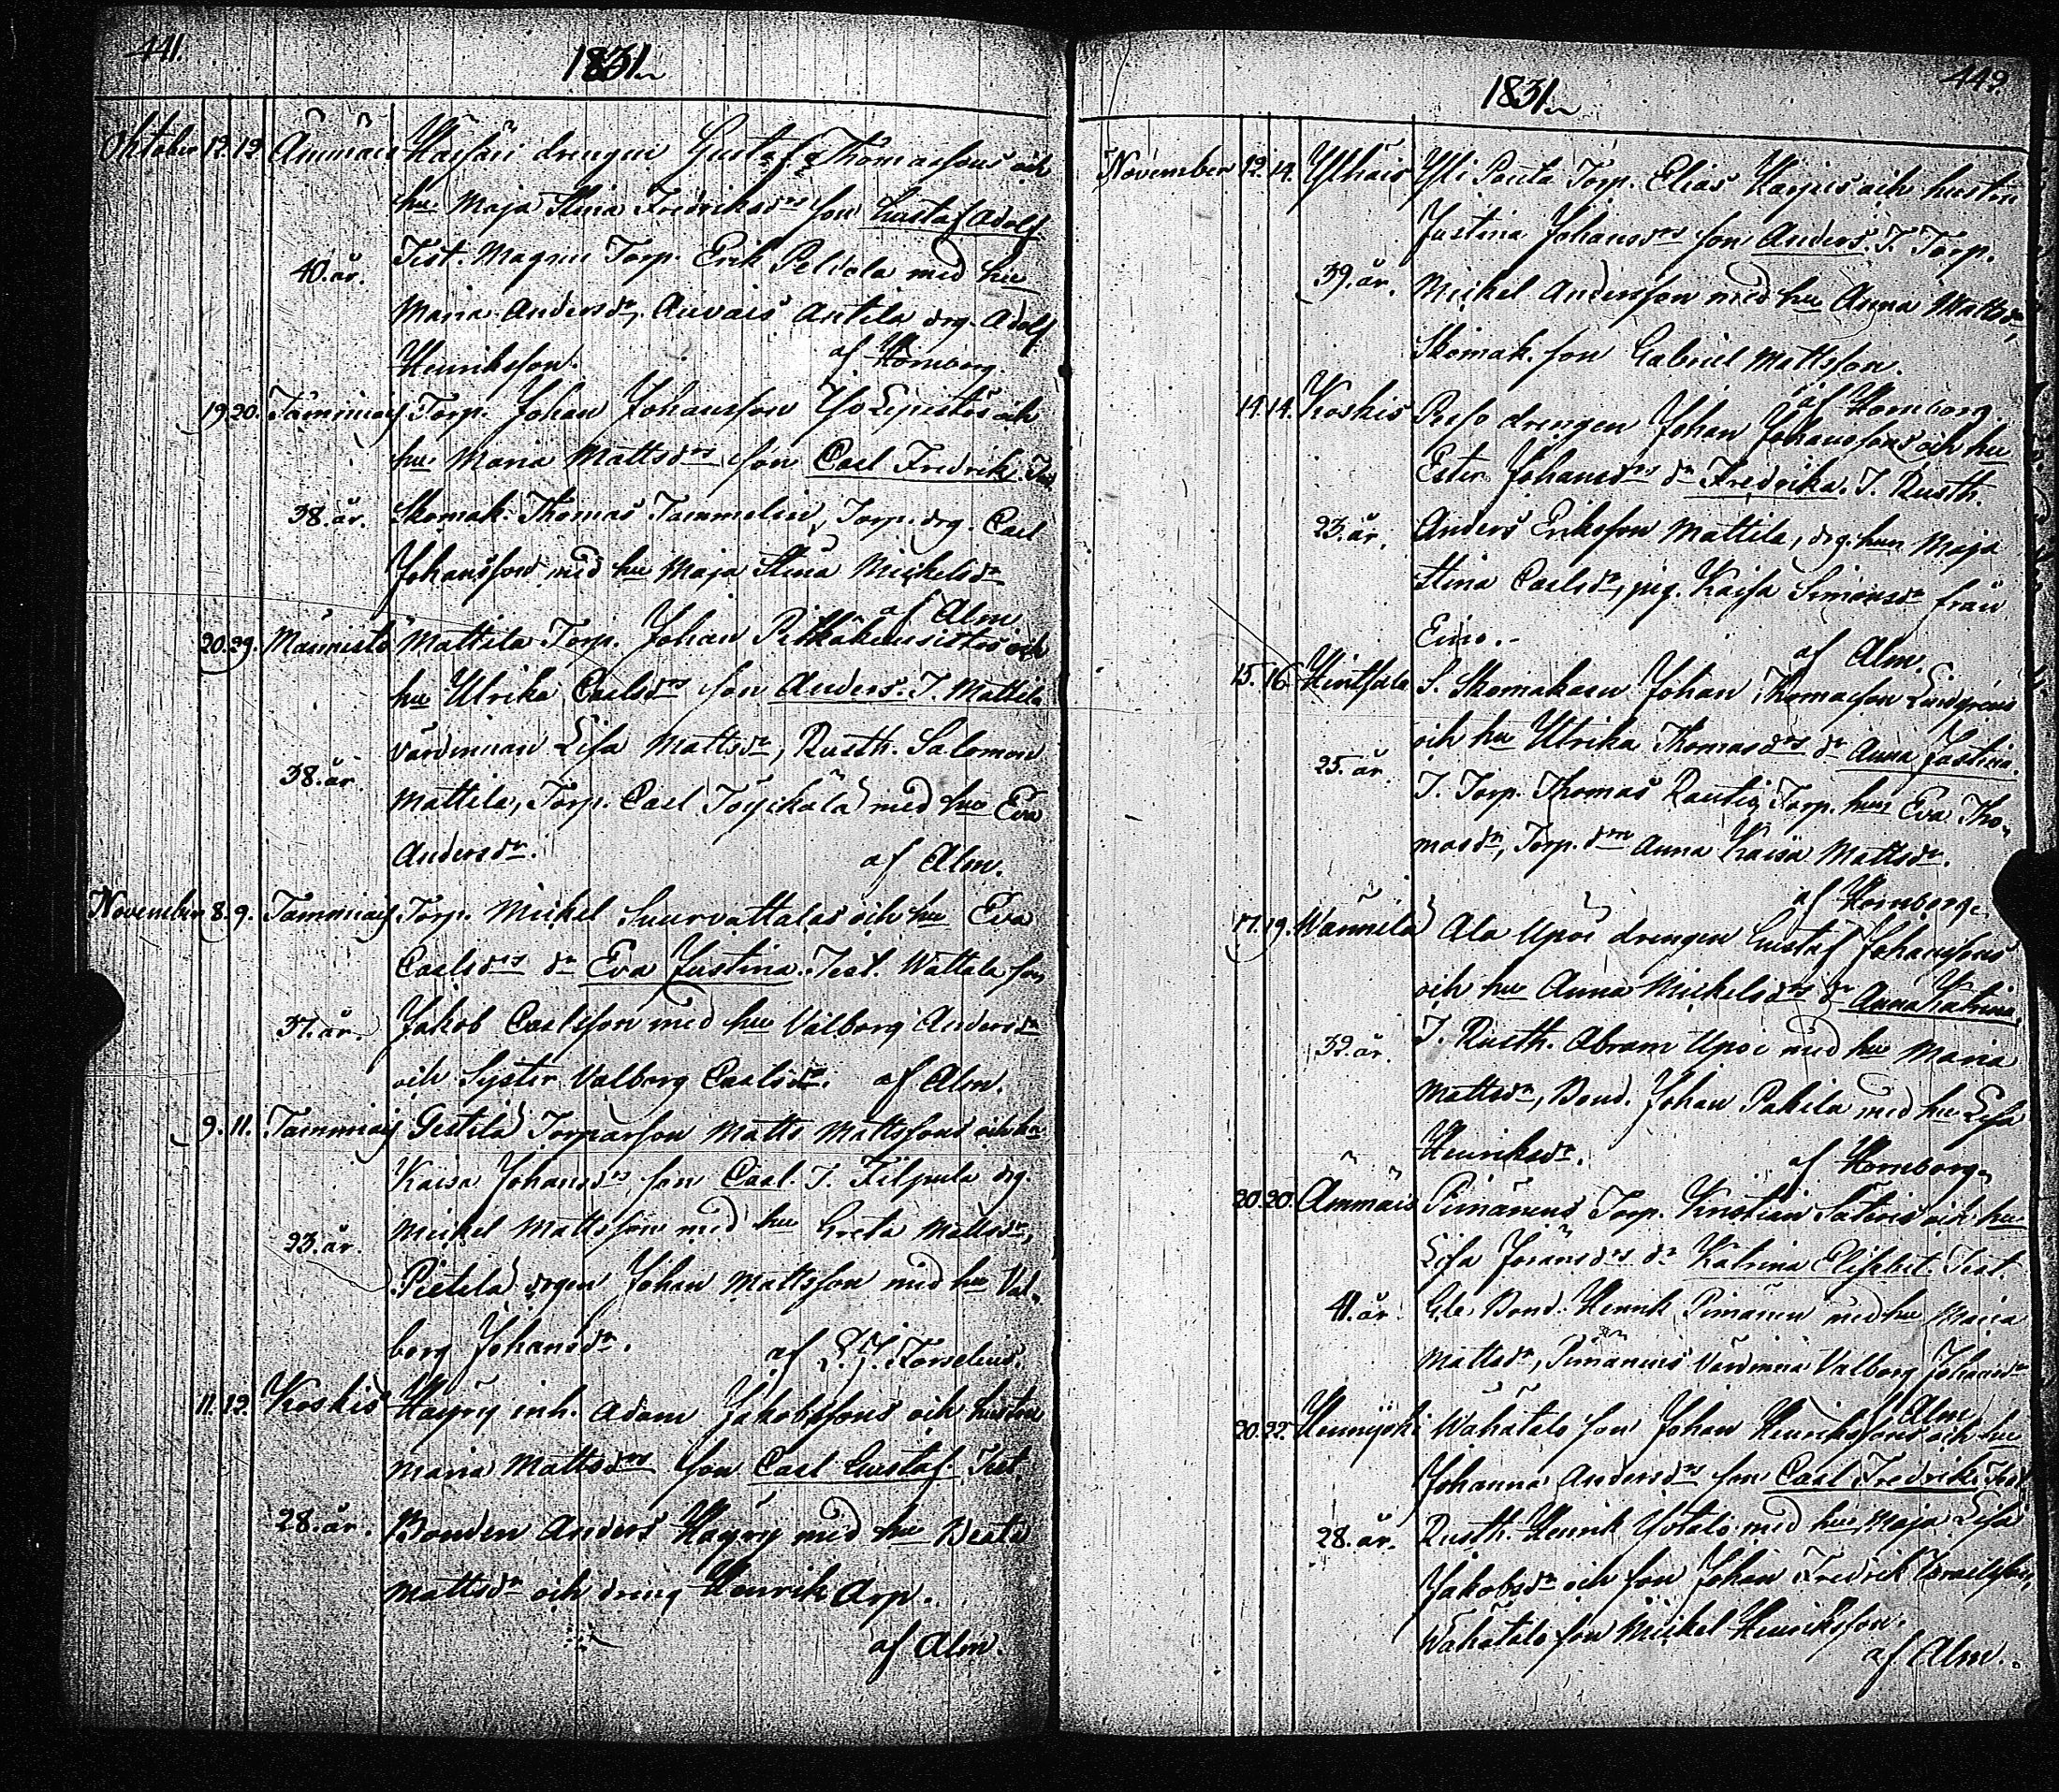 441.
1831.
Oktober 12. 12. Ämmäis drengen Gustaf Thomassons och
hu Maja Stina Fredriksdrs son Gustaf Adolf
Test. Magnu Torp. Erik Peldola med hu
40. år.
Maria Andersdr, Auvais Antila drg. Adolf
Henriksson. af Homborg.
19. 20. Tammiais Torp. Johan Johansson Yso och
hu Maria Mattsdrs son Carl Fredrik. Test.
38. år. Skomak. Thomas Tammelin, Torp. drg. Carl
Johansson med hu Maja Stina Mickelsdr
af Alm
20. 29. Männistö Mattila Torp. Johan och
hu Ulrika Carlsdrs son Anders. T. Mattila
värdinnan Lisa Mattsdr, Rusth. Salomon
38. år.
Mattila, Torp. Carl Töyckälä med hu Eva
Andersdr. af Alm.
November 8. 9. Tammiais Torp. Mickel Suurvattalas och hu Eva
Carlsdrs dr Eva Justina. Test. Wattala son
37. år. Jakob Carlsson med hu Valborg Andersdr
och Syster Valborg Carlsdr. af Alm.
9. 11. Tammiais Torparson Matts Mattssons och hu
Kaisa Johansdrs son Carl. T. Filpula drg.
23. år. Mickel Mattsson med hu Greta Mattsdr,
Pietilä drgen Johan Mattsson med hu Val-
borg Johansdr. af
11. 12. Koskis Häyry inh. Adam Jakobssons och hustru
Maria Mattsdrs son Carl Gustaf. Test
28. år. Bonden Anders Häyry med hu Beata
Mattsdr och dreng Henrik Arp.
af Alm.
442.
1831.
November 12. 14. Ylhäis Yli Pouta Torp. Elias Karpis och hustru
Justina Johansdrs son Anders. T. Torp.
39. år. Mickel Andersson med hu Anna Mattsdr,
Skomak. son Gabriel Mattsson.
af Homborg.
14. 14. Koskis drengen Johan Johanssons och hu
Ester Johansdrs dr Fredrika. T. Rusth.
23. år. Anders Eriksson Mattila, drg. hun Maja
Stina Carlsdr, pig. Kaisa Simonsdr från
Eino. af Alm.
15. 16. Hintsala S. Skomakaren Johan Thomasson Lindgrens
och hu Ulrika Thomasdrs dr Anna Justina.
25. år. T. Torp. Thomas Rautio, Torp. hun Eva Tho-
masdr, Torp. Anna Kaisa Mattsdr.
af Homborg.
17. 19. Wännilä Ala Upoi drengen Gustaf Johanssons
och hu Anna Mickelsdrs dr Anna Katrina.
32. år. T. Rusth. Abram Upoi med hu Maria
Mattsdr, Bond. Johan Pakila med hu Lisa
Henriksdr. af Homborg.
20. 20. Ämmäis Pimänens Torp. Kristian Säteris och hu
Lisa Jöransdrs dr Katrina Elisabet. Test.
41. år. Gle. Bond. Henrik Pimänen med hu Maria
Mattsdr, Pimänens Värdinna Valborg Johansdr
af Alm
20. 22. Hennijoki Wahatalo son Johan Henrikssons och hu
Johanna Andersdrs son Carl Fredrik. Test
28. år. Rusth. Henrik Yötalo med hu Maja Lisa
Jakobsdr och son Johan Fredrik Israelsson,
Wahatalo son Mickel Henriksson.
af Alm.